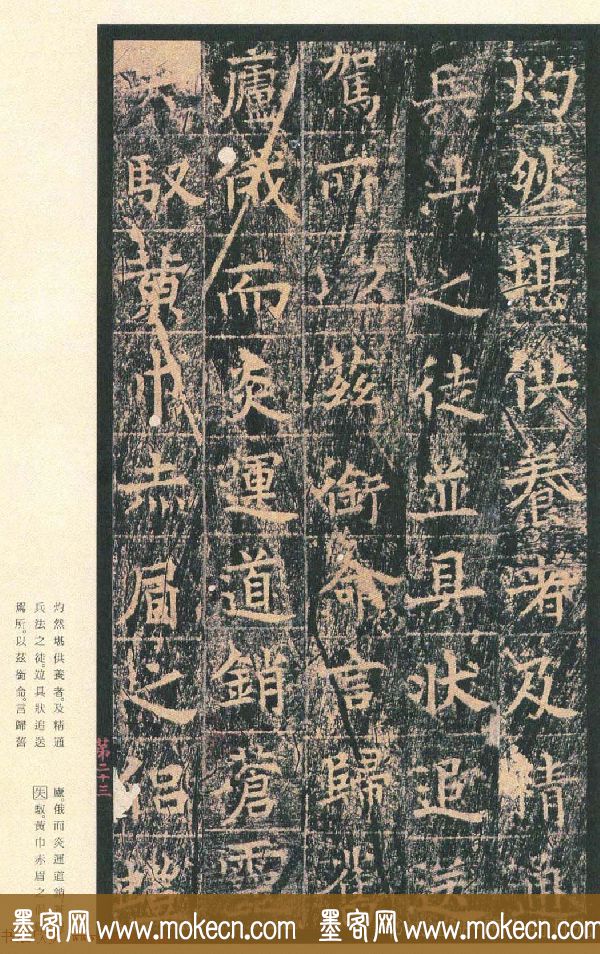 灼然堪供養者及精通
兵法之徒並具狀追送
駕所以茲銜命言歸舊
廬俄而炎運道銷蒼雲
失馭黃巾赤眉之侶
第二十三
灼然堪供養者。及精通
兵法之徒。並具狀追送
駕所。以茲銜命。言歸舊
廬。俄而炎運道銷
失馭。黃巾赤眉之
墨客网 www.mokecn.com 墨客网 www.mokecn.com